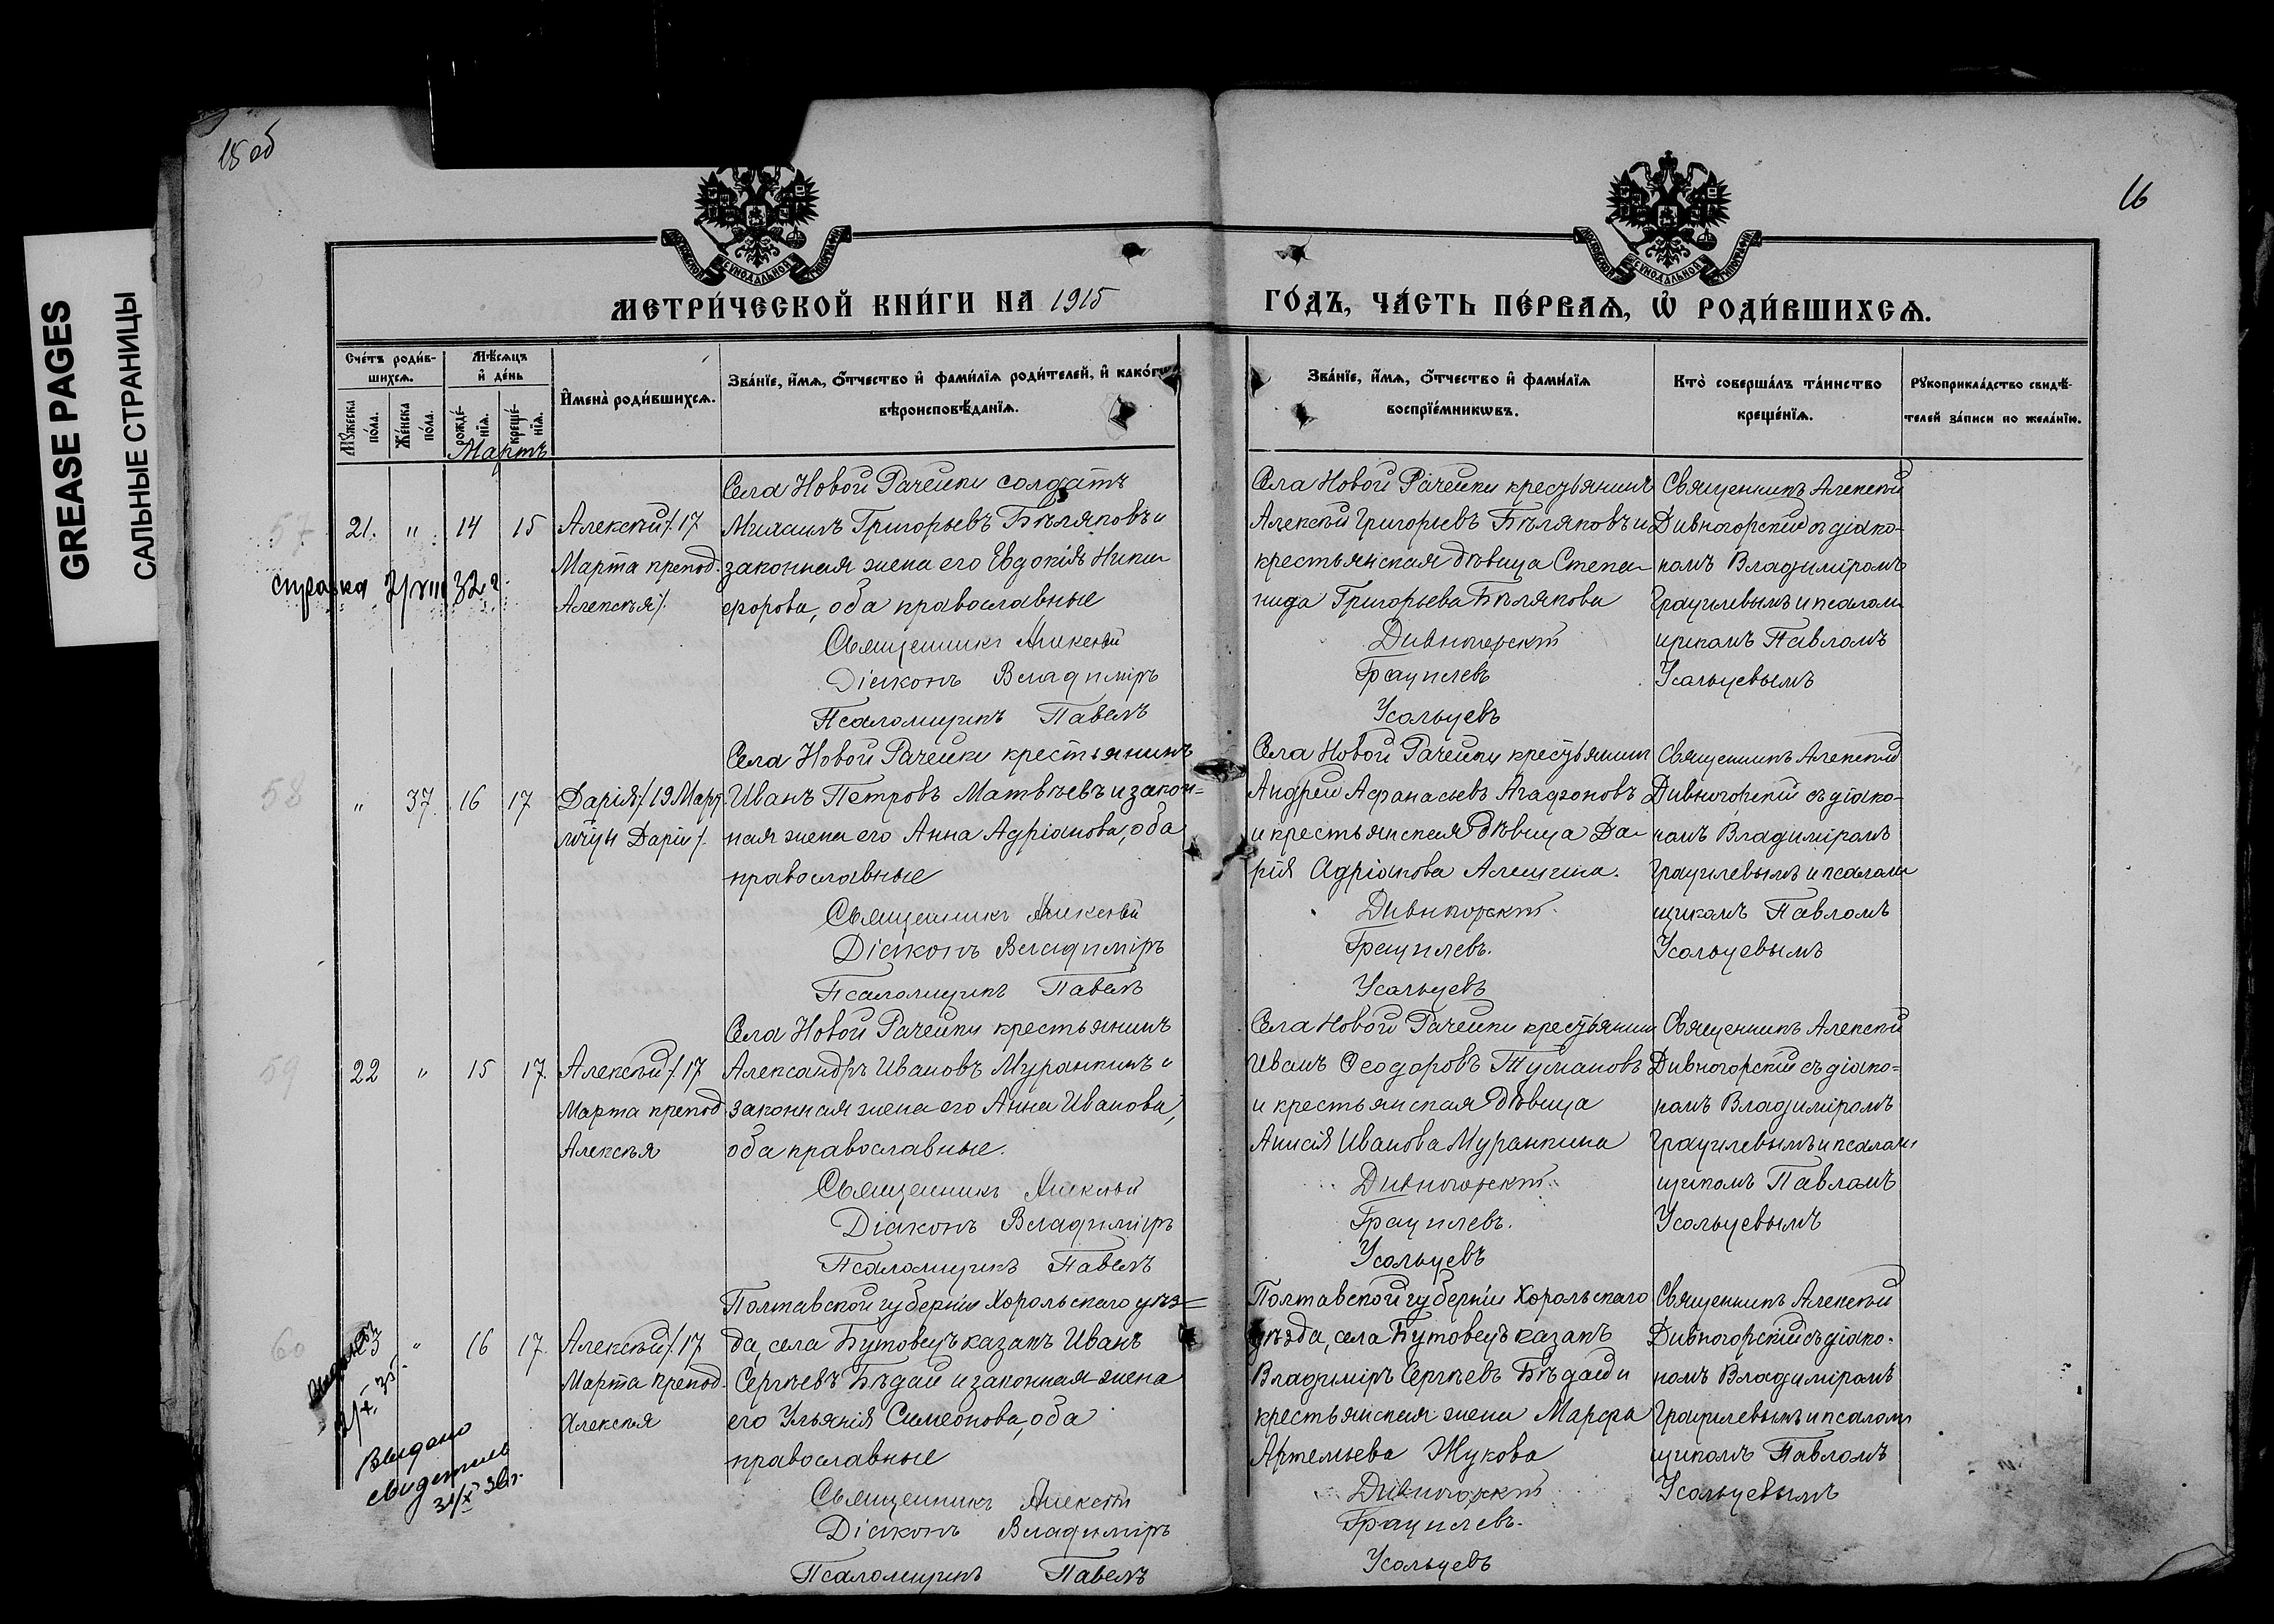 GREASE PAGES
САЛЬНЫЕ СТРАНИЦЫ
15 об
16
МОСКОВСКОЙ СѴНОДАЛЬНОЙ ТИПОГРАФІИ
МОСКОВСКОЙ СѴНОДАЛЬНОЙ ТИПОГРАФІИ
МЕТРИ́ЧЕСКОЙ КНИ́ГИ НА 1915
ГО́ДЪ, ЧА́СТЬ ПЕ́РВАѦ, Ѡ҆ РОДИ́ВШИХСѦ.
Сче́тъ роди́в-
шихсѧ.
Мꙋ́жеска по́ла.
Же́нска по́ла.
Мѣ́сѧцъ
и҆ де́нь
рожде́-
нїѧ.
креще́-
нїѧ.
Мартъ
И҆мена̀ роди́вшихсѧ.
Зва́нїе, и҆́мѧ, ѻ҆́тчество и҆ фами́лїѧ роди́телей, и҆ како́гѡ
вѣроисповѣ́данїѧ.
Зва́нїе, и҆́мѧ, ѻ҆́тчество и҆ фами́лїѧ
воспрїе́мникѡвъ.
Кто̀ соверша́лъ та́инство
креще́нїѧ.
Рꙋкоприкла́дство свидѣ́-
телей за́писи по жела́нїю.
57
21.
"
14
15
Алексѣй /. 17
Марта препод.
Алексѣя /.
справка 2/VIII 32 г.
Села Новой Рачейки солдатъ
Михаилъ Григорьевъ Бѣляковъ и
законная жена его Евдокія Ники-
форова, оба православные
Священникъ Алексѣй
Діаконъ Владиміръ
Псаломщикъ Павелъ
Села Новой Рачейки крестьянинъ
Алексѣй Григорьевъ Бѣляковъ и
крестьянская дѣвица Степа-
нида Григорьева Бѣлякова
Дивногорскій
Грацилевъ
Усольцевъ
Священникъ Алексѣй
Дивногорскій съ діако-
номъ Владиміромъ
Грацилевымъ и псалом-
щикомъ Павломъ
Усольцевымъ
58
"
37.
16
17
Дарія /. 19 Март.
м̃цы Даріи /.
Села Новой Рачейки крестьянинъ
Иванъ Петровъ Матвѣевъ и закон=
ная жена его Анна Адріанова, оба
православные
Священникъ Алексѣй
Діаконъ Владиміръ
Псаломщикъ Павелъ
Села Новой Рачейки крестьянинъ
Андрей Афанасьевъ Агафоновъ
и крестьянская дѣвица Да-
рія Адріанова Алешина.
Дивногорскій
Грацилевъ.
Усольцевъ
Священникъ Алексѣй
Дивногорскій съ діако-
номъ Владиміромъ
Грацилевымъ и псалом-
щикомъ Павломъ
Усольцевымъ
59
22
"
15
17.
Алексѣй /. 17
Марта препод.
Алексѣя
Села Новой Рачейки крестьянинъ
Александръ Ивановъ Муранкинъ и
законная жена его Анна Иванова,
оба православные.
Священникъ Алексѣй
Діаконъ Владиміръ
Псаломщикъ Павелъ
Села Новой Рачейки крестьянинъ
Иванъ Ѳеодоровъ Тумановъ
и крестьянская дѣвица
Анисія Иванова Муранкина
Дивногорскій
Грацилевъ.
Усольцевъ
Священникъ Алексѣй
Дивногорскій съ діако=
номъ Владиміромъ
Грацилевымъ и псалом-
щикомъ Павломъ
Усольцевымъ
60
23
"
16
17.
Алексѣй /. 17
Марта препод.
Алексѣя
Выдано
свидетель
31/X 36 г.
Полтавской губерніи Хорольскаго уѣз=
да, села Бутовецъ казакъ Иванъ
Сергѣевъ Бѣдай и законная жена
его Ульянія Симеонова, оба
православные
Священникъ Алексѣй
Діаконъ Владиміръ
Псаломщикъ Павелъ
Полтавской губерніи Хорольскаго
уѣзда, села Бутовецъ казакъ
Владиміръ Сергѣевъ Бѣдай и
крестьянская жена Марфа
Артемьева Жукова
Дивногорскій
Грацилевъ.
Усольцевъ
Священникъ Алексѣй
Дивногорскій съ діако-
номъ Владиміромъ
Грацилевымъ и псалом-
щикомъ Павломъ
Усольцевымъ